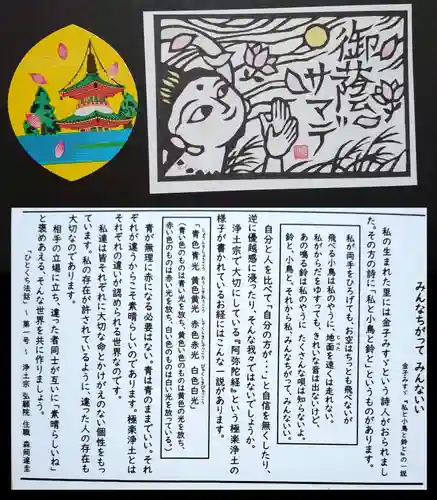 御蔭さマデ
みんなちがって みんないい
金子みすゞ「私と小鳥と鈴と」の一説
私の生まれた里には金子みすゞという詩人がおられまし
た。その方の詩に「私と小鳥と鈴と」というものがあります。
私が両手をひろげても、お空はちっとも飛べないが
飛べる小鳥は私のやうに、地面を速くは走れない。
私がからだをゆすっても、きれいな音は出ないけど、
あの鳴る鈴は私のやうに たくさんな唄は知らないよ。
鈴と、小鳥と、それから私、みんなちがって、みんないい。
自分と人を比べて、「自分の方が・・・」と自信を無くしたり、
逆に優越感に浸ったり、そんな我々ではないでしょうか。
浄土宗で大切にしている『阿弥陀経』という極楽浄土の
様子が書かれているお経にはこんな一説があります。
「青色青光 黄色黄光 赤色赤光 白色白光」
(青い色のものは青い光を放ち、黄色い色のものは黄色の光を放ち、
赤い色のものは赤い光を放ち、白い色のものは白い光を放っている)
青が無理に赤になる必要はない。青は青のままでいい。それ
ぞれが違うからこそ素晴らしいのであります。極楽浄土とは
それぞれの違いが認められる世界なのです。
私達は皆それぞれに大切な命とかけがえのない個性をもっ
ています。私の存在が許されているように、違った人の存在も
大切なのであります。
相手の立場に立ち、違った者同士が互いに、「素晴らしいね」
と褒めあえる、そんな世界を共に作りましょう。
「ひとくち法話」 ~ 第一号 ~ 浄土宗 弘願院 住職 森岡達圭